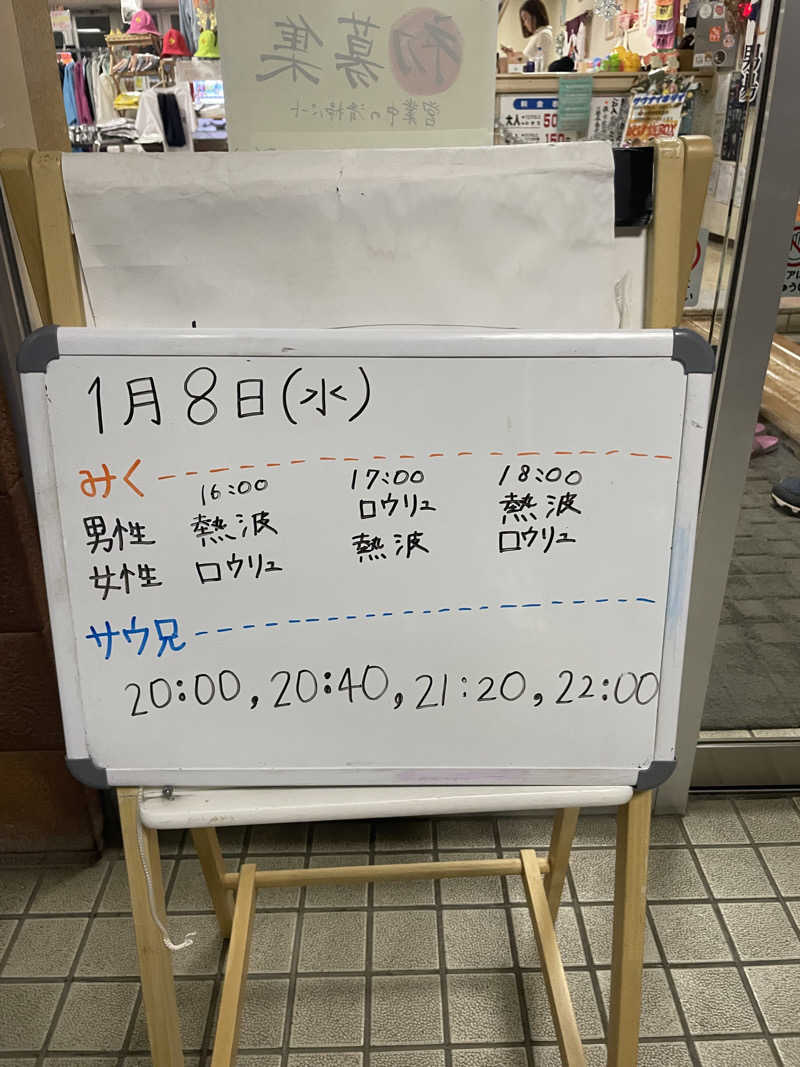 初募集
営業中の清掃パート
料金表
大人
50
150
1月8日(水)
みく
16:00 17:00 18:00
男性 熱波 ロウリュ 熱波
女性 ロウリュ 熱波 ロウリュ
サウ兄
20:00, 20:40, 21:20, 22:00